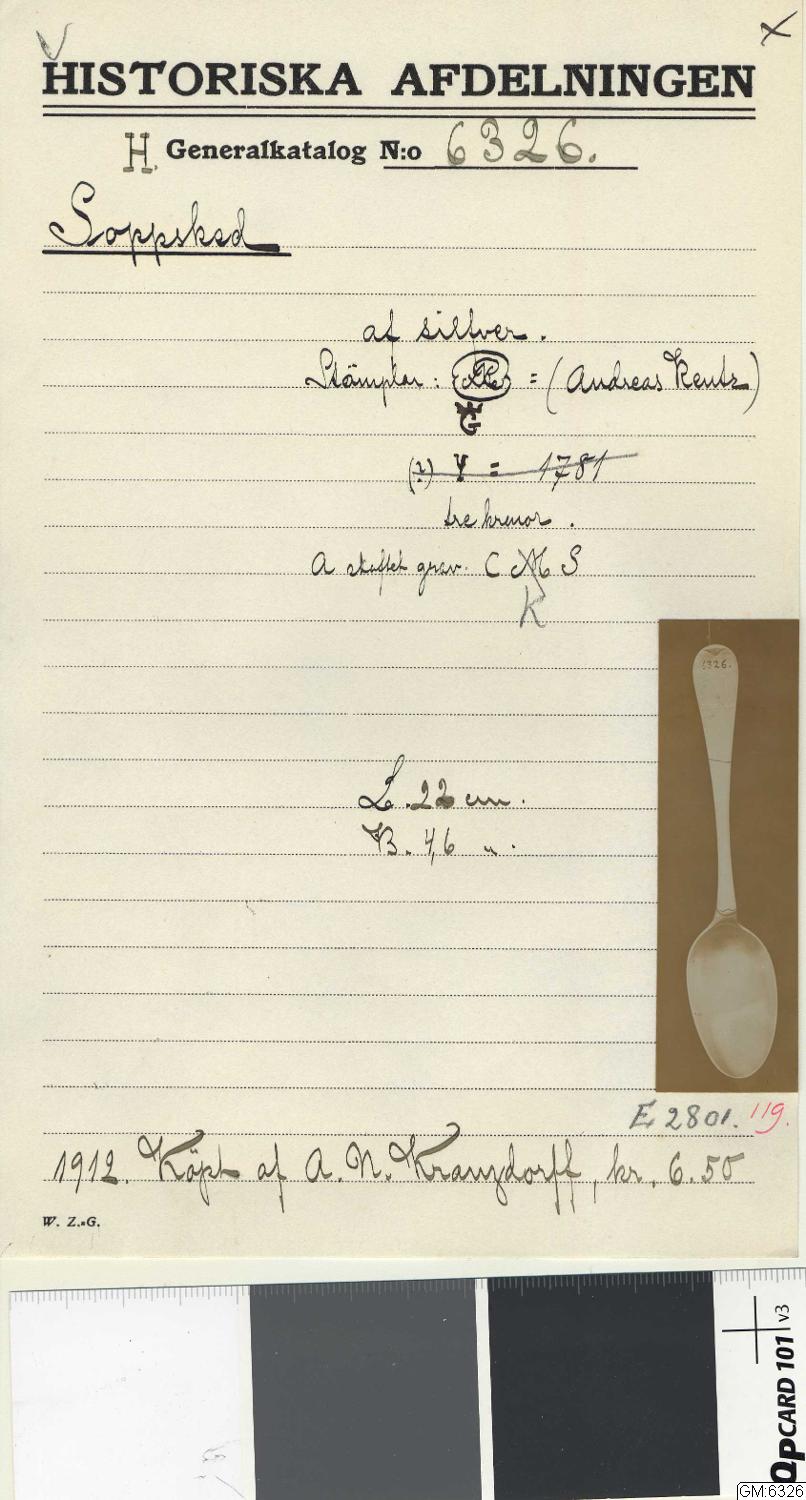 HISTORISKA AFDELNINGEN
H. Generalkatalog N:o 6326.
Soppsked
af silfver.
Stämplar: = (Andreas Reutz)
G
(?) Y = 1781
tre kronor.
A skaftet grav. C M S
K
L. 22 cm.
B. 4,6 ".
6326.
E 2801. 119.
1912. Köpt af A. N. Kranzdorff, kr. 6.50
W. Z.-G.
QPCARD 101 v3
GM:6326